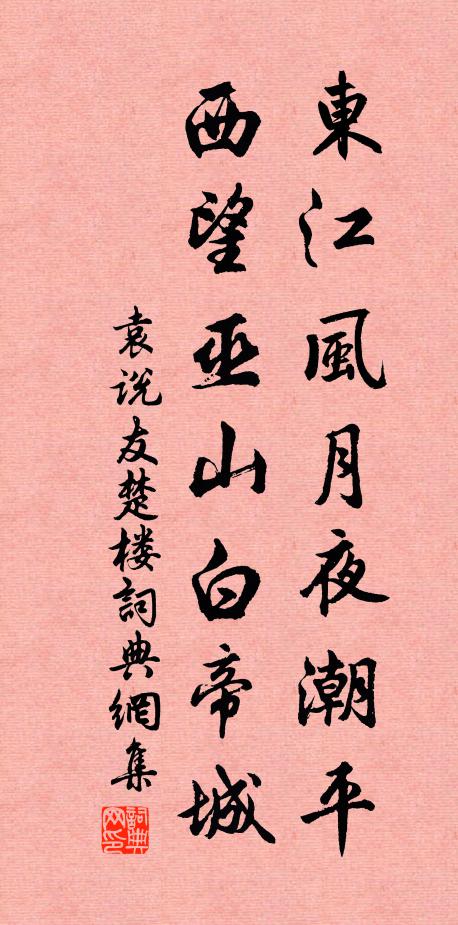 東江風月夜潮平
西望巫山白帝城
袁说友楚楼詞典網集
詞典
网印